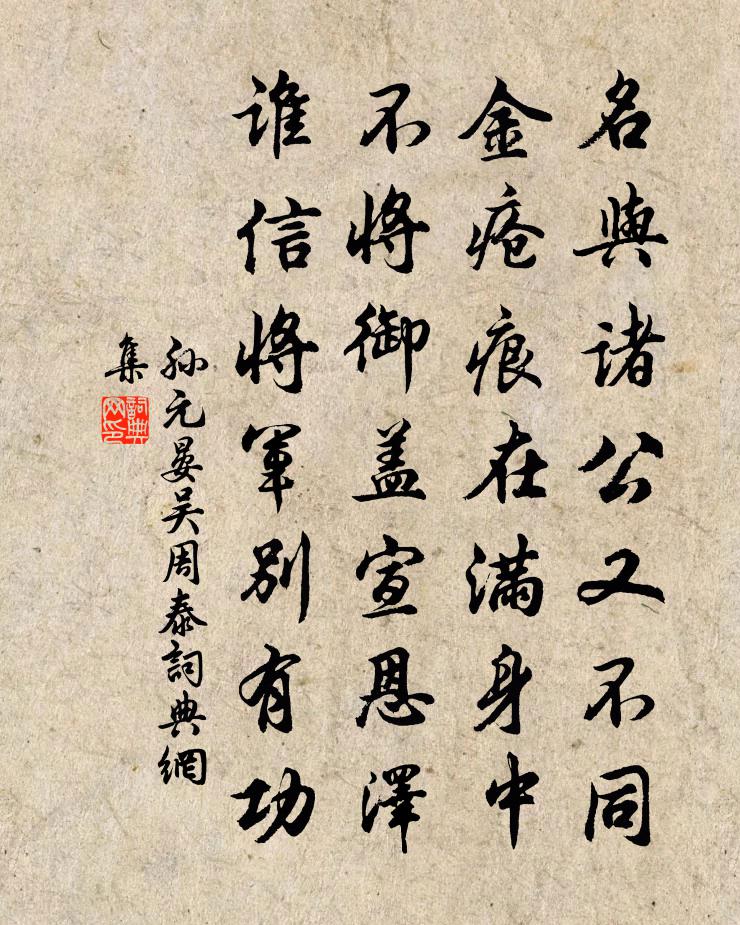 名與諸公又不同
金瘡痕在滿身中
不將御盖宣恩澤
誰信將軍別有功
孫元晏吴周泰詞典網
集
詞典
网印